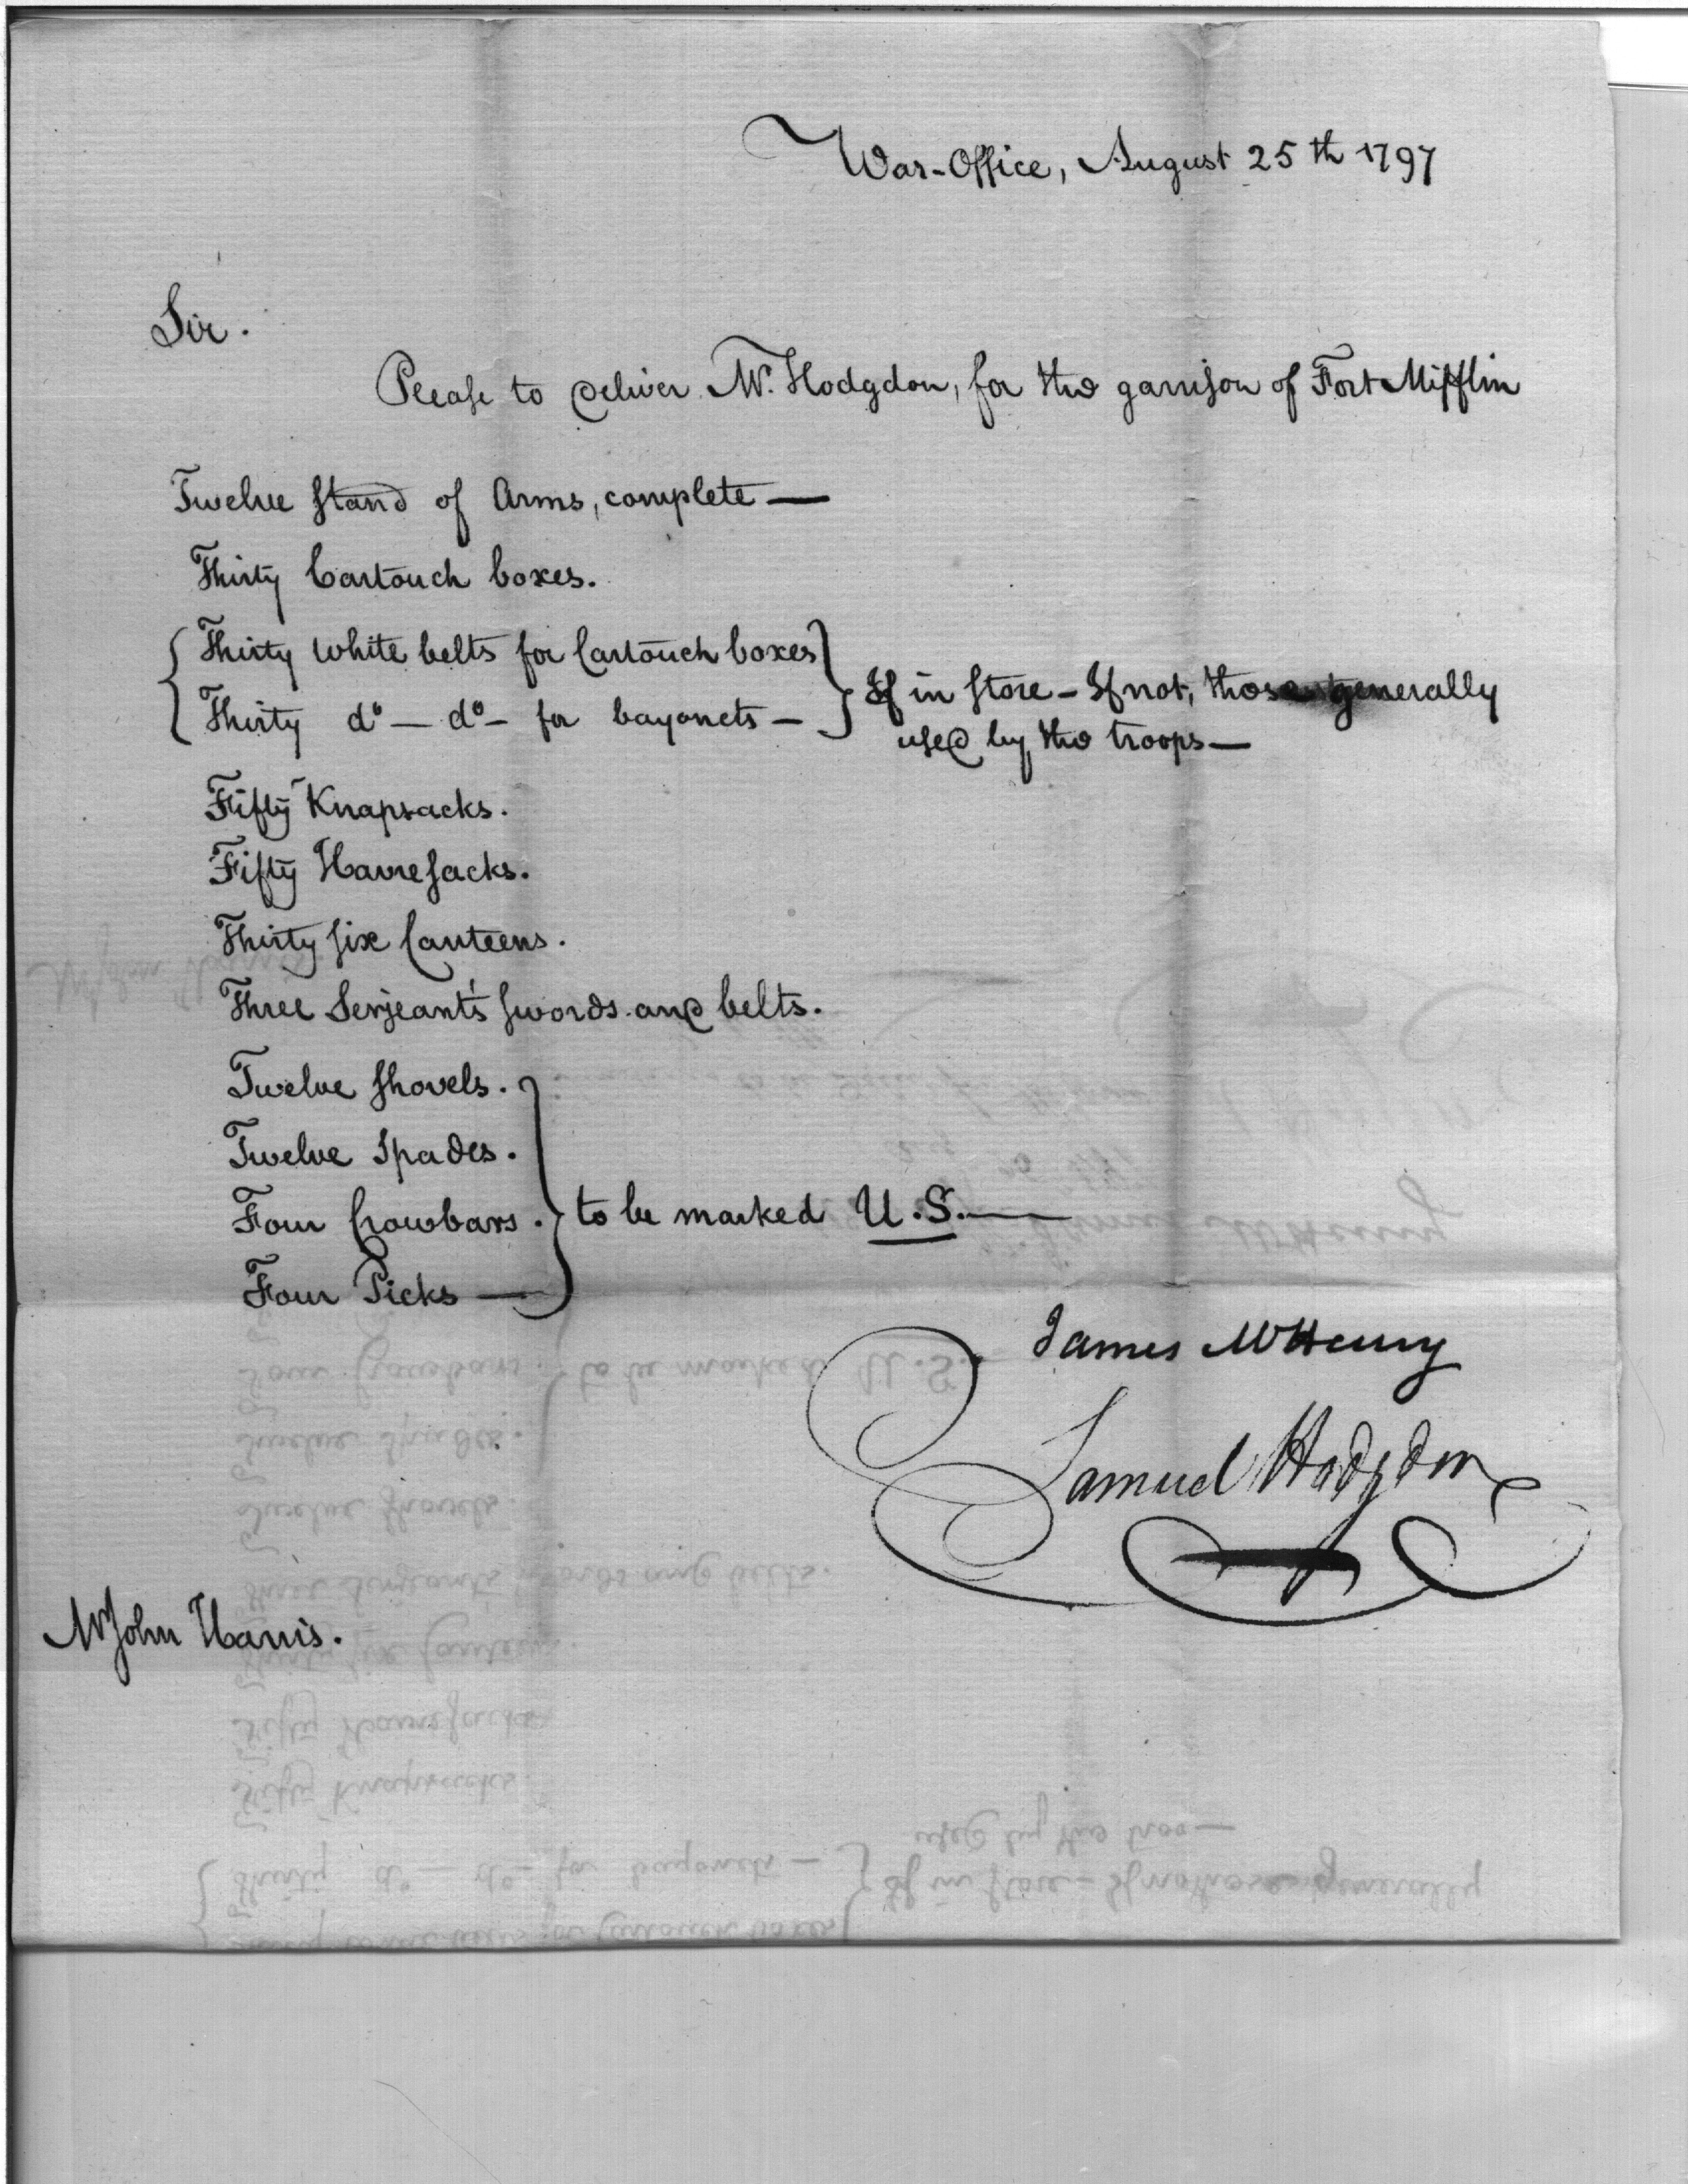 War-Office, August 25th 1797
Sir.
Please to deliver Mr. Hodgdon, for the garrison of Fort Mifflin
Twelve stand of Arms, complete —
Thirty Cartouch boxes.
Thirty white belts for Cartouch boxes
Thirty do — do — for bayonets —
If in store - If not, those generally
used by the troops —
Fifty Knapsacks.
Fifty Havresacks.
Thirty six Canteens.
Three Serjeant's swords and belts.
Twelve shovels.
Twelve Spades.
Four Crowbars.
to be marked U.S. —
Four Picks —
James McHenry
Samuel Hodgdon
Mr John Harris.